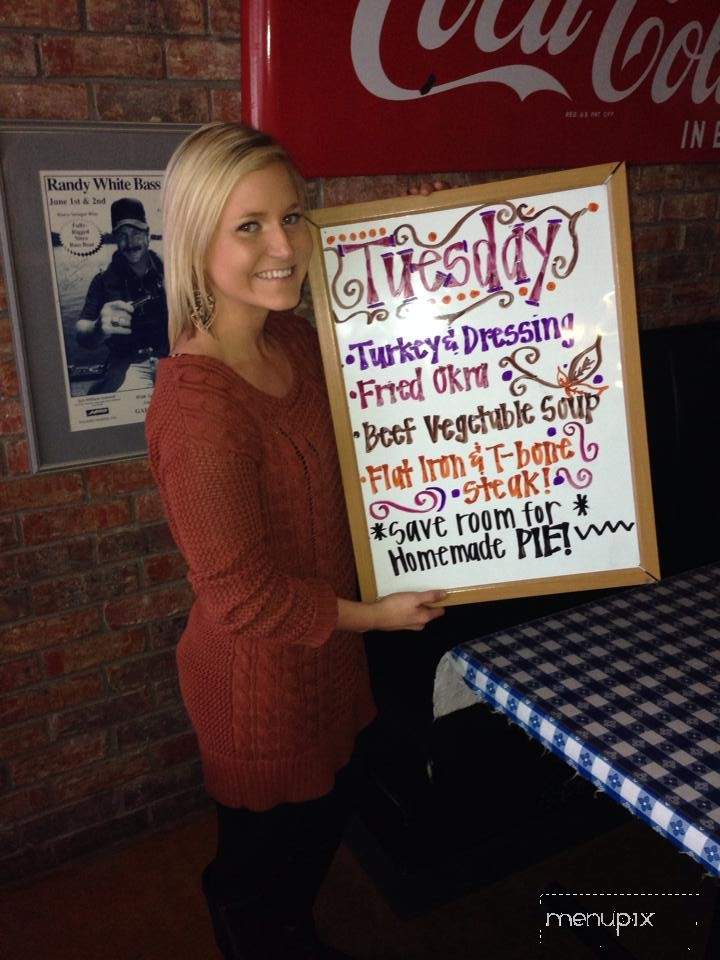 Coca Cola
REG. US. PAT. OFF.
IN
Randy White Bass
June 1st & 2nd
Tuesday
•Turkey & Dressing
•Fried Okra
•Beef Vegetable Soup
•Flat Iron & T-bone
•Steak!•
*Save room for *
Homemade PIE!
menupix